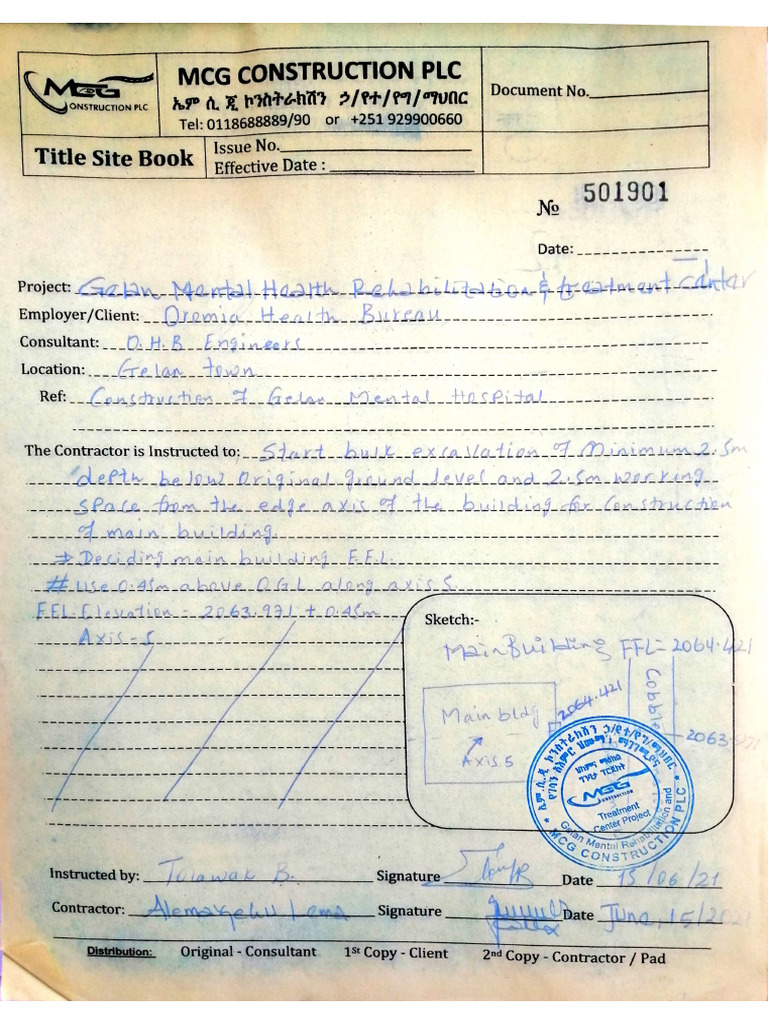 MCG CONSTRUCTION PLC
MCG CONSTRUCTION PLC
ኤም ሲ ጂ ኮንስትራክሽን ኃ/የተ/የግ/ማህበር
Tel: 0118688889/90 or +251 929900660
Document No.
Title Site Book
Issue No.
Effective Date :
№ 501901
Date:
Project: Gelan Mental Health Rehabilitation & treatment Center
Employer/Client: Oromia Health Bureau
Consultant: O.H.B Engineers
Location: Gelan town
Ref: Construction of Gelan Mental Hospital
The Contractor is Instructed to: Start bulk excavation of Minimum 2.5m
depth below Original ground level and 2.5m working
space from the edge axis of the building for Construction
of main building.
⇒ Deciding main building F.F.L.
# Use 0.45m above OGL along axis 5.
F.F.L. Elevation = 2063.971 + 0.45m
Axis-5
Sketch:-
Main Building FFL = 2064.421
Main bldg
Axis 5
2064.421
Cobble
2063.971
ኤም.ሲ.ጂ ኮንስትራክሽን ኃ/የተ/የግ/ማህበር
MCG
CONSTRUCTION
Treatment
Center Project
Gelan Mental Rehabilitation and
MCG CONSTRUCTION PLC
Instructed by: B. Signature Date 15/06/21
Contractor: Alemayehu Lema Signature Date June, 15/2021
Distribution: Original - Consultant 1st Copy - Client 2nd Copy - Contractor / Pad